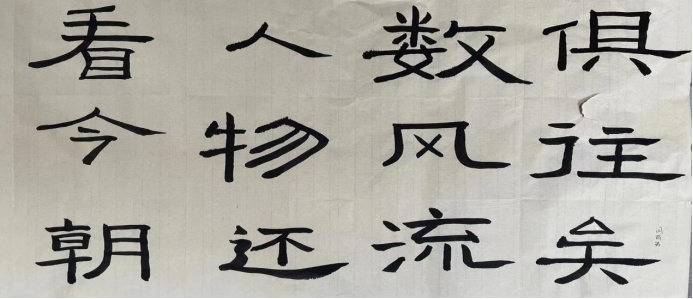 俱往矣
数风流
人物还
看今朝